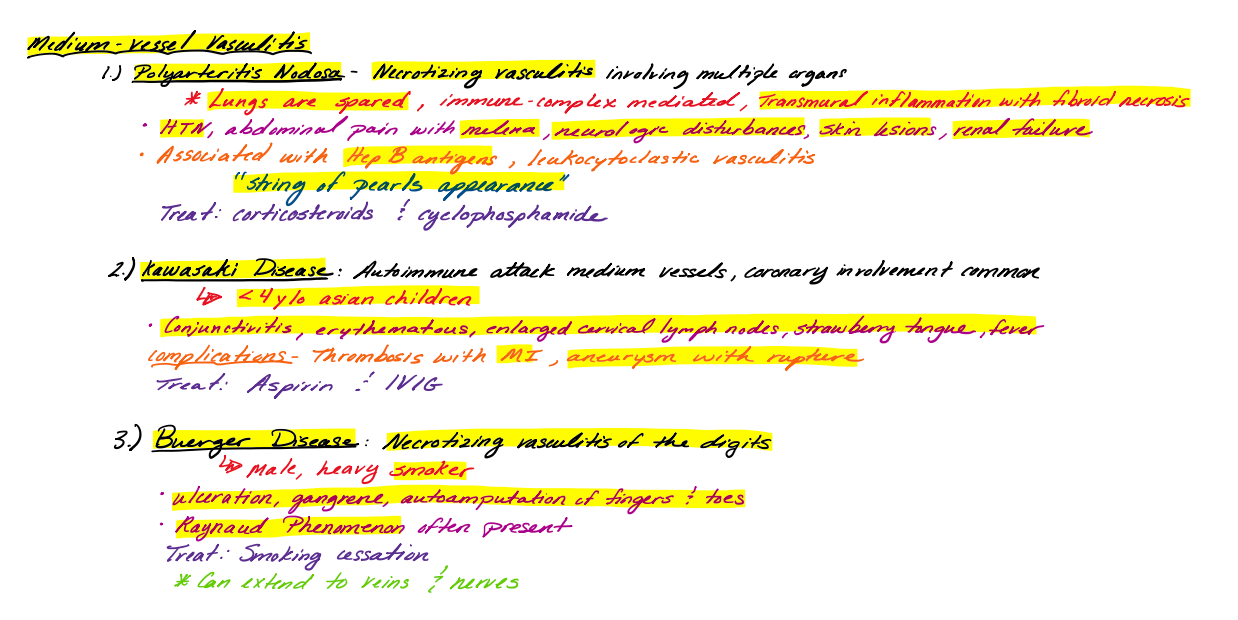 Medium-vessel Vasculitis
1.) Polyarteritis Nodosa - Necrotizing vasculitis involving multiple organs
* Lungs are spared, immune-complex mediated, Transmural inflammation with fibroid necrosis
· HTN, abdominal pain with melena, neurologic disturbances, skin lesions, renal failure
· Associated with Hep B antigens, leukocytoclastic vasculitis
"string of pearls appearance"
Treat: corticosteroids & cyclophosphamide
2.) Kawasaki Disease: Autoimmune attack medium vessels, coronary involvement common
↳ <4 y/o asian children
· Conjunctivitis, erythematous, enlarged cervical lymph nodes, strawberry tongue, fever
complications - Thrombosis with MI, aneurysm with rupture
Treat: Aspirin & IVIG
3.) Buerger Disease: Necrotizing vasculitis of the digits
↳ Male, heavy smoker
· ulceration, gangrene, autoamputation of fingers & toes
· Raynaud Phenomenon often present
Treat: Smoking cessation
* Can extend to veins & nerves